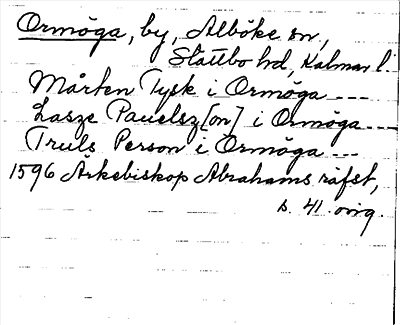 Ormöga, by, Alböke sn,
Slättbo hd, Kalmar l.
Mårten Tysk i Ormöga ---
Lasze Pauelsz[on] i Ormöga ---
Truls Person i Ormöga ---
1596 Ärkebiskop Abrahams räfst,
s. 41. orig.